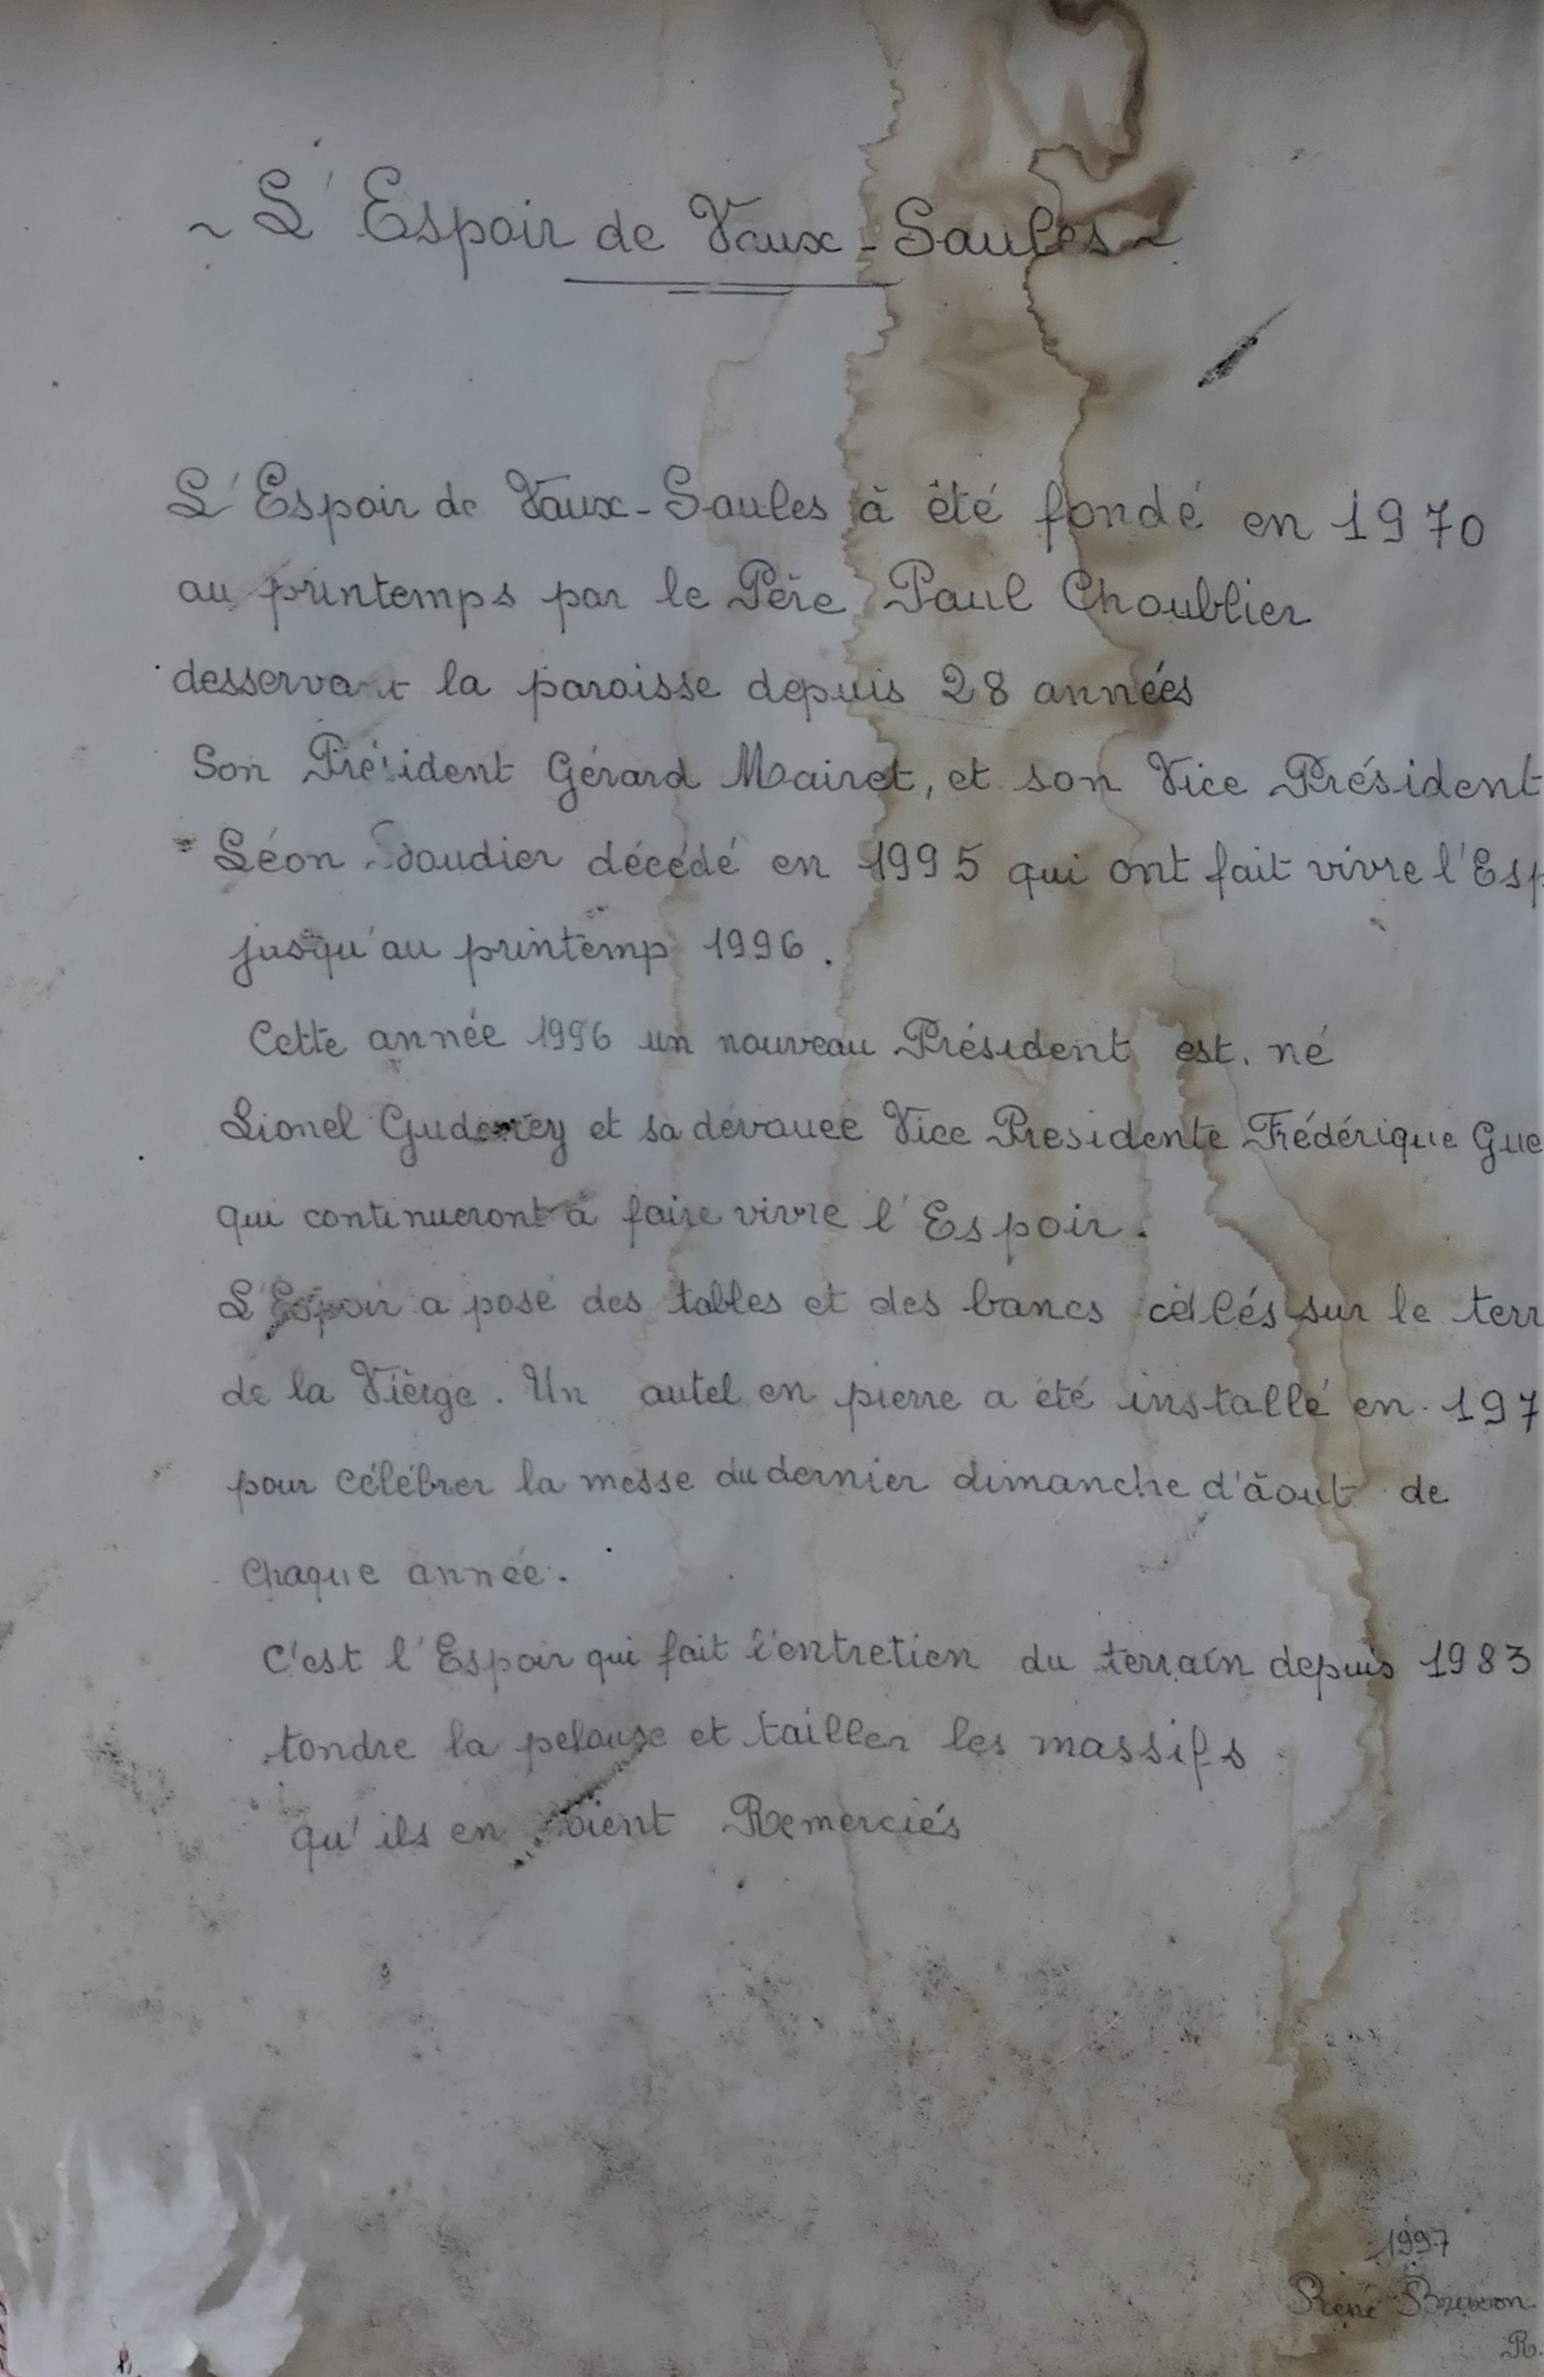 ~ L'Espoir de Vaux-Saules ~
L'Espoir de Vaux-Saules à été fondé en 1970
au printemps par le Père Paul Choublier
desservant la paroisse depuis 28 années
Son Président Gérard Mairet, et son Vice Président
Léon décédé en 1995 qui ont fait vivre l'Esp
jusqu'au printemp 1996.
Cette année 1996 un nouveau Président est né
Lionel et sa dévouée Vice Presidente Frédérique Gue
qui continueront à faire vivre l'Espoir.
L'Espoir a posé des tables et des bancs sur le terr
de la Vièrge. Un autel en pierre a été installé en 197
pour célébrer la messe du dernier dimanche d'âout de
chaque année.
C'est l'Espoir qui fait l'entretien du terrain depuis 1983
tondre la pelouse et tailler les massifs
qu'ils en soient Remerciés
1997
René
R.